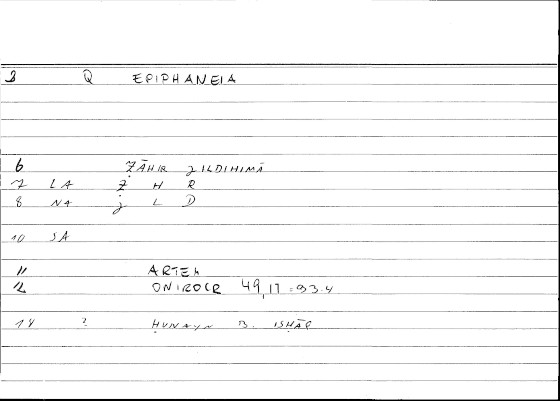 3 Q EPIPHANEIA
6 ẒĀHIR ǧILDIHIMĀ
7 LA Ẓ H R
8 NA ǧ L D
10 SA
11 ARTEM
12 ONIROCR 49,17 = 93.4
14 ? ḤUNAYN B. ISḤĀQ